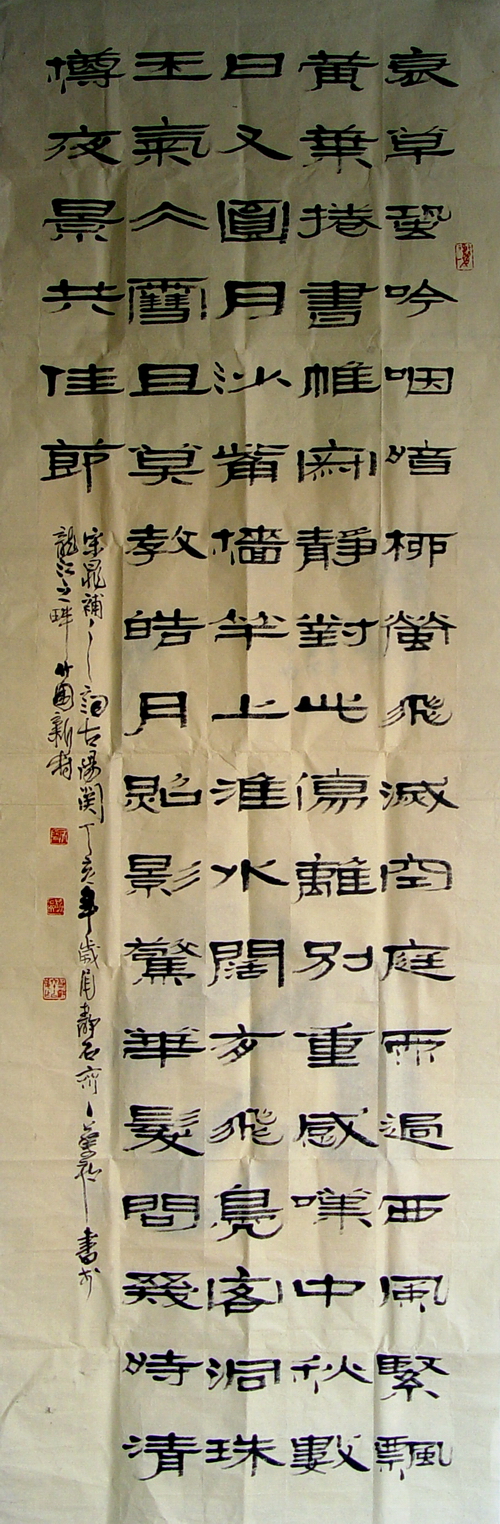 衰草蛩吟咽暗柳螢飛滅空庭雨過西風緊飄
黃葉捲書帷寂靜對此傷離別重感嘆中秋數
日又圓月沙觜檣竿上淮水闊有飛鳧客洞珠
玉氣冰雪且莫教皓月照影驚華髮問幾時清
樽夜景共佳節
宋晁補之詞古陽關丁亥年歲月靜石齋主書於
龍江之畔竹園新村